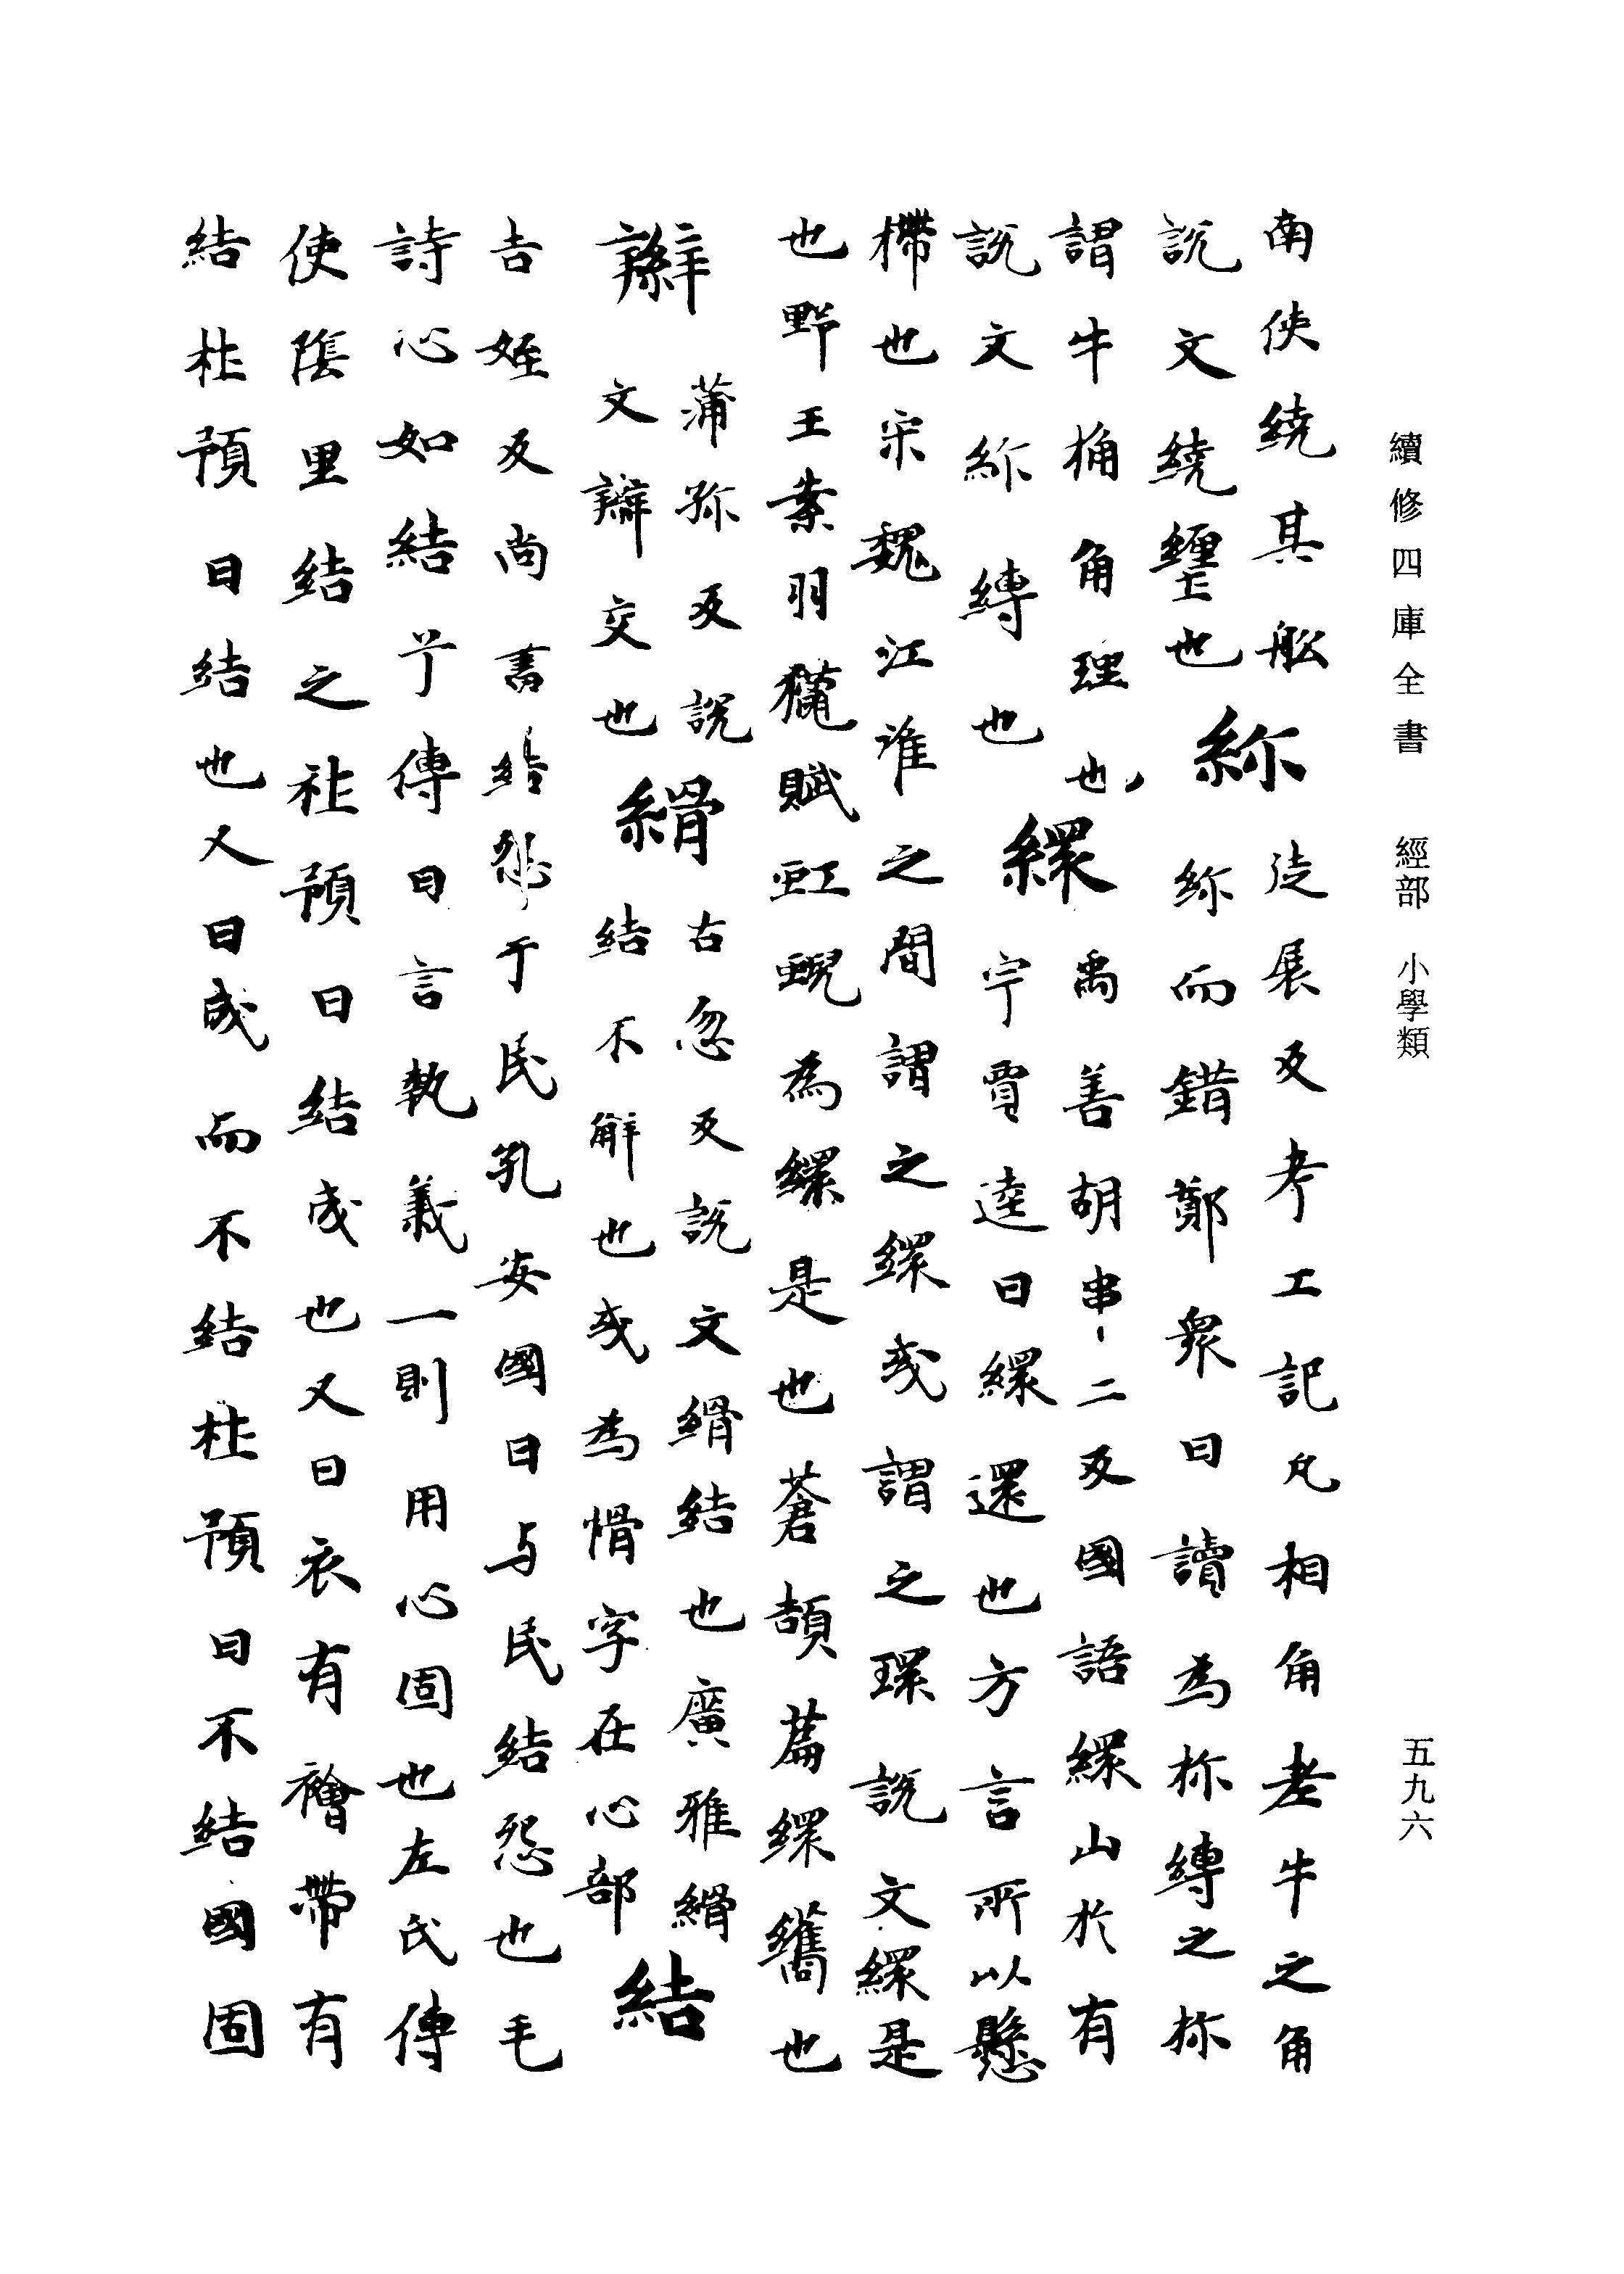 續修四庫全書　經部　小學類
五九六
南使繞其舩徒展反考工記凡相角老牛之角
說文繞纏也紾紾而錯鄭衆曰讀為抮縛之抮
謂牛桷角理也禹善胡串、二反國語繯山於有
說文紾縛也繯宁宁賈逵曰繯還也方言所以懸
㯂也宋魏江淮之間謂之繯或謂之環說文繯是
也野王案羽獵賦虹蜺為繯是也蒼頡篇繯䌰也
辮蒲殄反說文緭結也廣雅縎
文辮交也縎古忽反說結不解也或為愲字在心部結
吉姪反尚書結怨于民孔安國曰与民結怨也毛
詩心如結兮傳曰言執義一則用心固也左氏傳
使陰里結之社預曰結成也又曰衣有襘帶有
結杜預曰結也又曰成而不結杜預曰不結國固